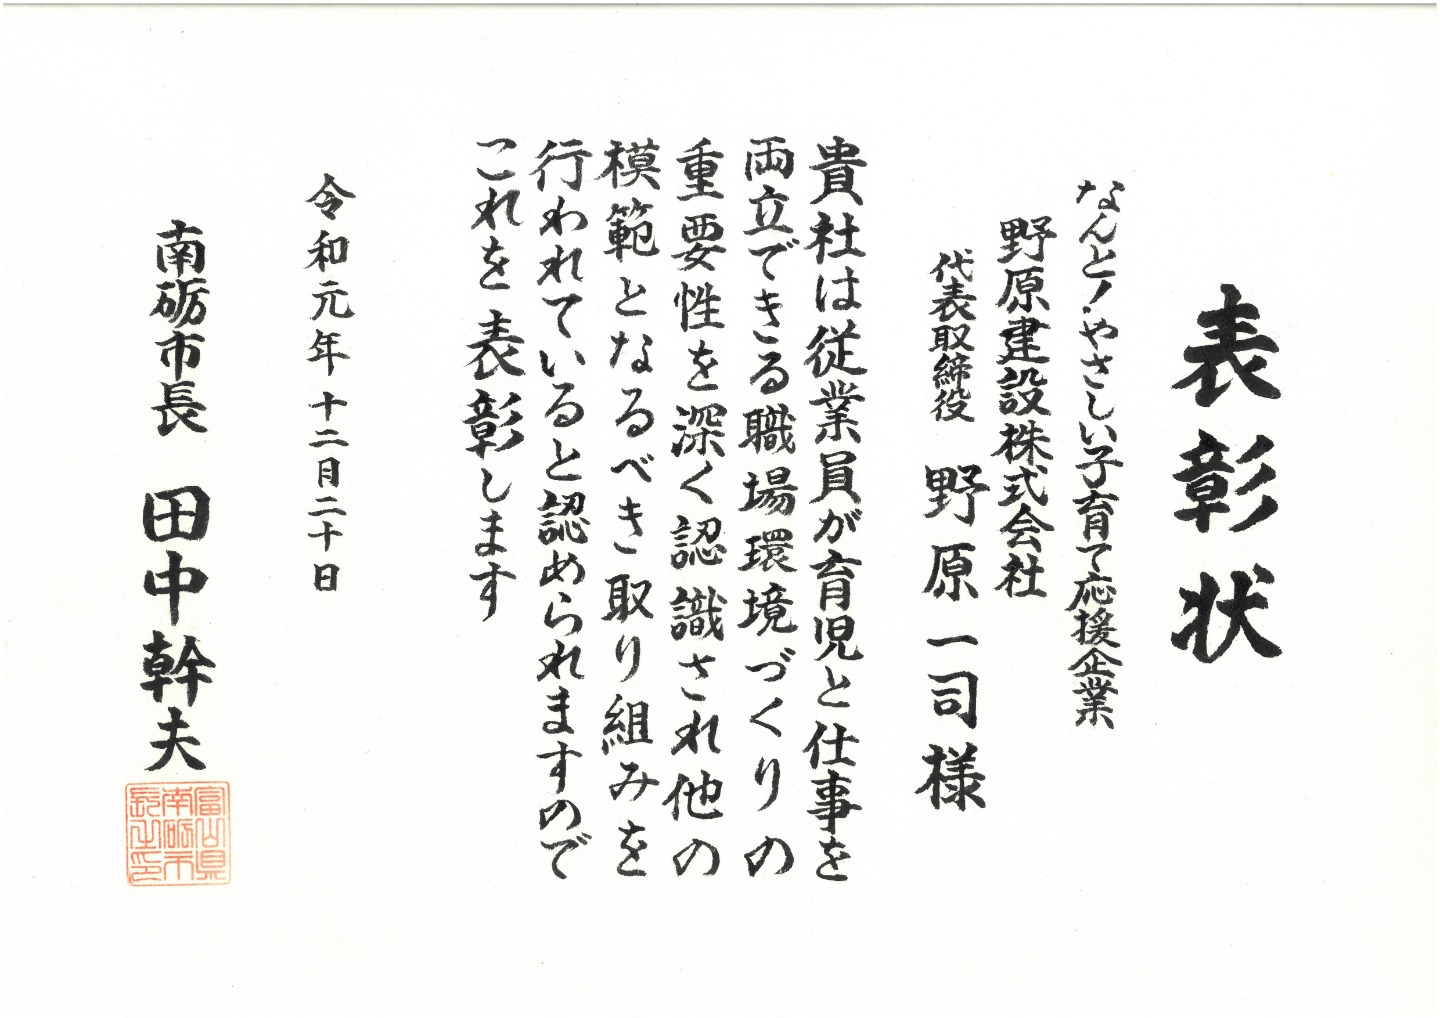 表彰状
なんと!やさしい子育て応援企業
野原建設株式会社
代表取締役 野原一司様
貴社は従業員が育児と仕事を
両立できる職場環境づくりの
重要性を深く認識され他の
模範となるべき取り組みを
行われていると認められますので
これを表彰します
令和元年十二月二十日
南砺市長 田中幹夫
富山県
南砺市
長之印